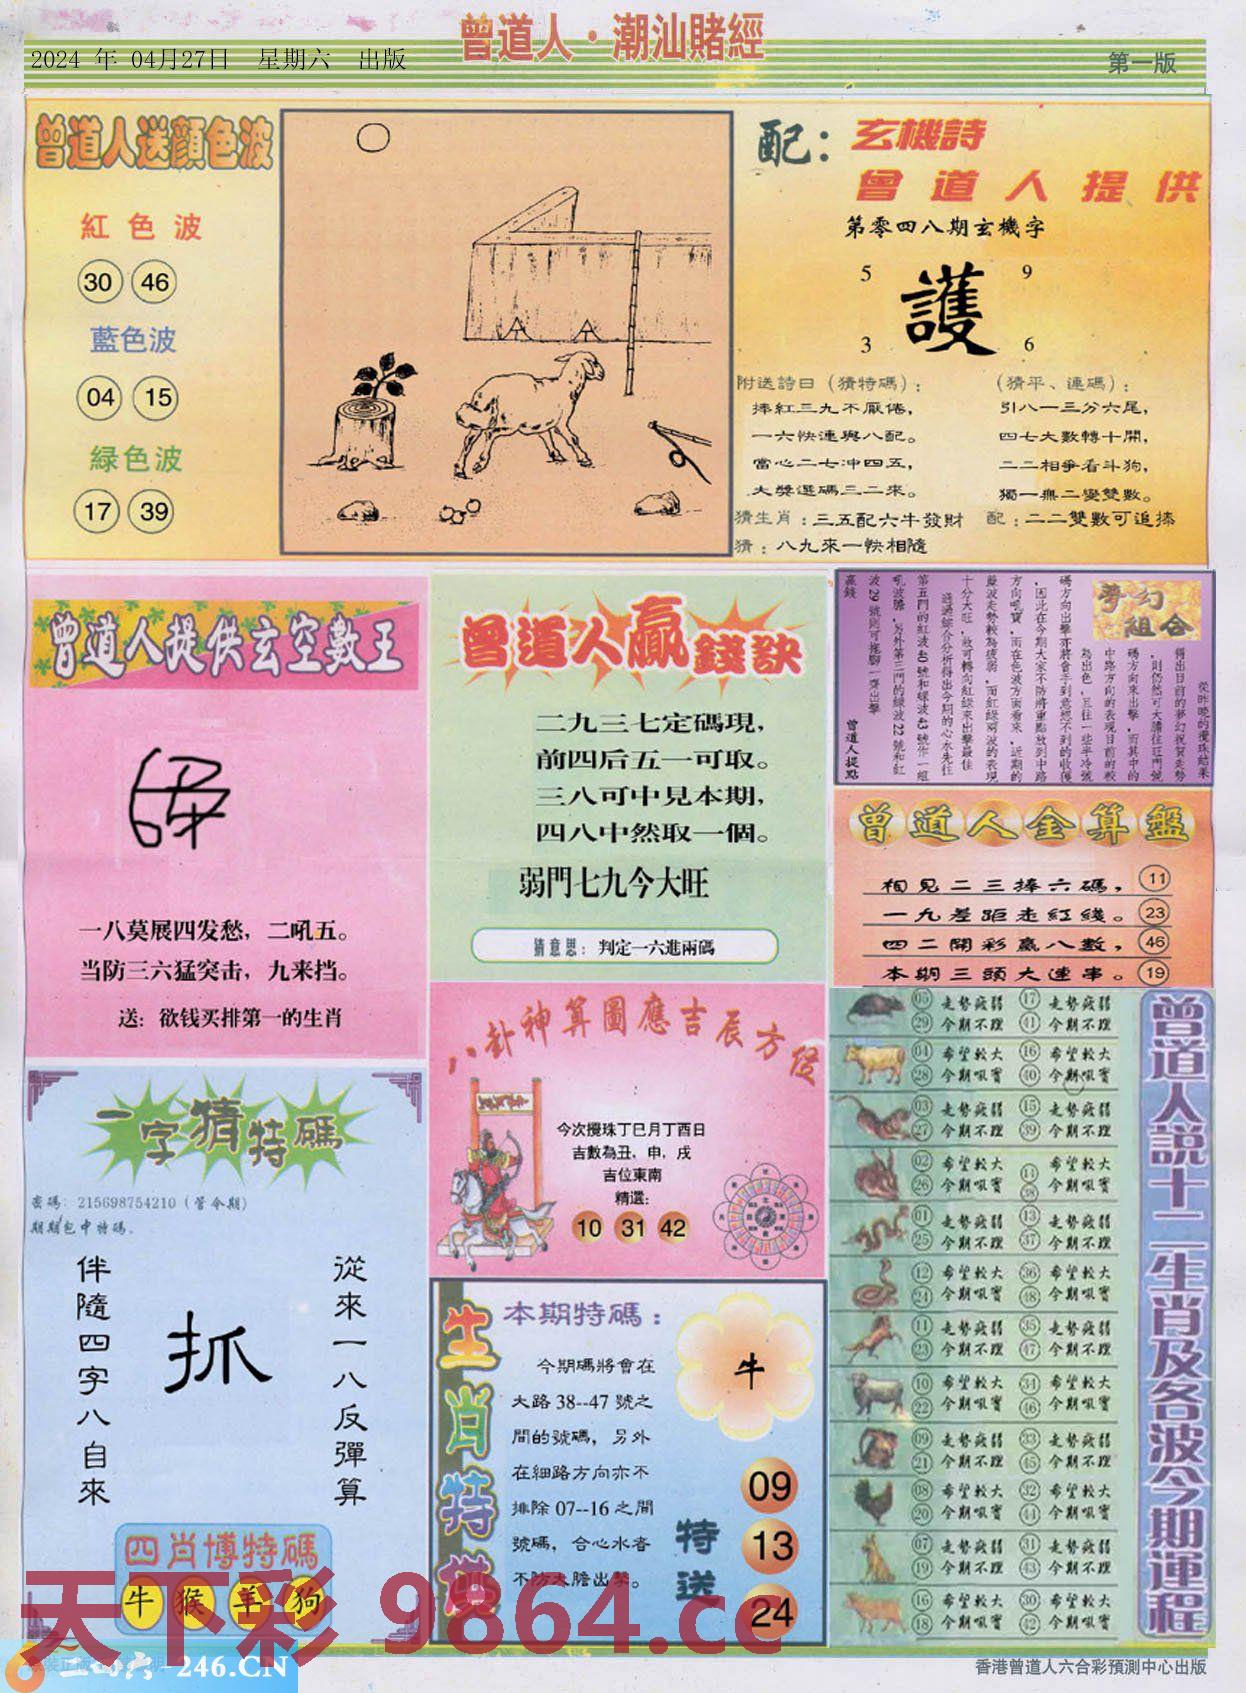 曾道人·潮汕賭經
2024 年 04月27日 星期六 出版
第一版
曾道人送顔色波
紅色波
30 46
藍色波
04 15
緑色波
17 39
配：玄機詩
曾道人提供
第零四八期玄機字
5 9
護
3 6
附送詩曰（猜特碼）：
捧紅三九不厭倦，
一六快連與八配。
當心二七冲四五，
大獎選碼三二來。
猜生肖：三五配六牛發財
猜：八九來一快相隨
（猜平、連碼）：
引八一三分六尾，
四七大數轉十開，
二二相爭看斗狗，
獨一無二變雙數。
配：二二雙數可追捧
曾道人提供玄空數王
一八莫展四发愁，二吼五。
当防三六猛突击，九来挡。
送：欲钱买排第一的生肖
曾道人贏錢訣
二九三七定碼現，
前四后五一可取。
三八可中見本期，
四八中然取一個。
弱門七九今大旺
猜意思：判定一六進兩碼
夢幻組合
曾道人提點
曾道人金算盤
相見二三捧六碼， 11
一九差距走紅綫。 23
四二開彩贏八數， 46
本期三頭大連串。 19
一字猜特碼
密碼：215698754210（管令期）
期期包中特碼。
從來一八反彈算
抓
伴隨四字八自來
四肖博特碼
牛 猴 羊 狗
八卦神算圖應吉辰方位
今次攪珠丁巳月丁酉日
吉數為丑，申，戌
吉位東南
精選：
10 31 42
生肖特供
本期特碼：
今期碼將會在
大路 38--47 號之
間的號碼，另外
在細路方向亦不
排除 07--16 之間
號碼，合心水者
不防大膽出擊。
牛
特送
09
13
24
曾道人説十二生肖及各波今期運程
05 走勢疲弱 17 走勢疲弱
29 今期不理 41 今期不理
04 希望較大 16 希望較大
28 今期吼實 40 今期吼實
03 走勢疲弱 15 走勢疲弱
27 今期不理 39 今期不理
02 希望較大 希望較大
26 今期吼實 38 今期吼實
01 走勢疲弱 13 走勢疲弱
25 今期不理 37 今期不理
12 希望較大 36 希望較大
24 今期吼實 48 今期吼實
11 走勢疲弱 35 走勢疲弱
23 今期不理 47 今期不理
10 希望較大 34 希望較大
22 今期吼實 46 今期吼實
09 走勢疲弱 33 走勢疲弱
21 今期不理 45 今期不理
08 希望較大 32 希望較大
20 今期吼實 44 今期吼實
07 走勢疲弱 31 走勢疲弱
19 今期不理 43 今期不理
16 希望較大 30 希望較大
18 今期吼實 42 今期吼實
天下彩 9864.cc
二四六-246.CN
香港曾道人六合彩預測中心出版